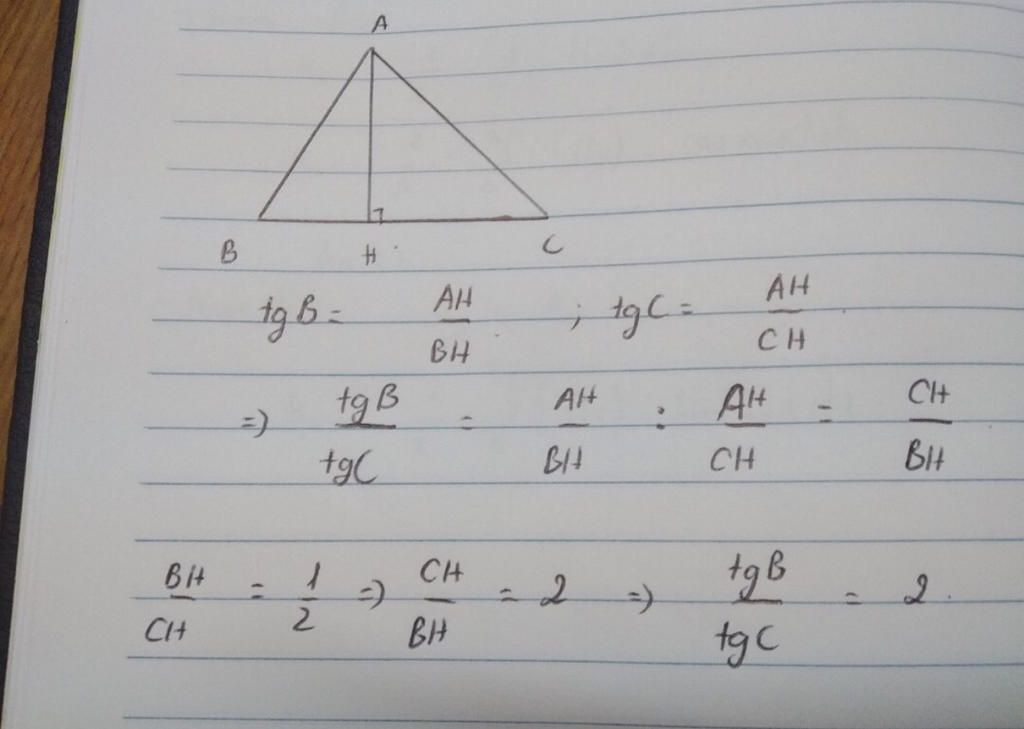 A
B H C
tgB = AH/BH ; tgC = AH/CH
=> tgB/tgC = AH/BH : AH/CH = CH/BH
BH/CH = 1/2 => CH/BH = 2 => tgB/tgC = 2.